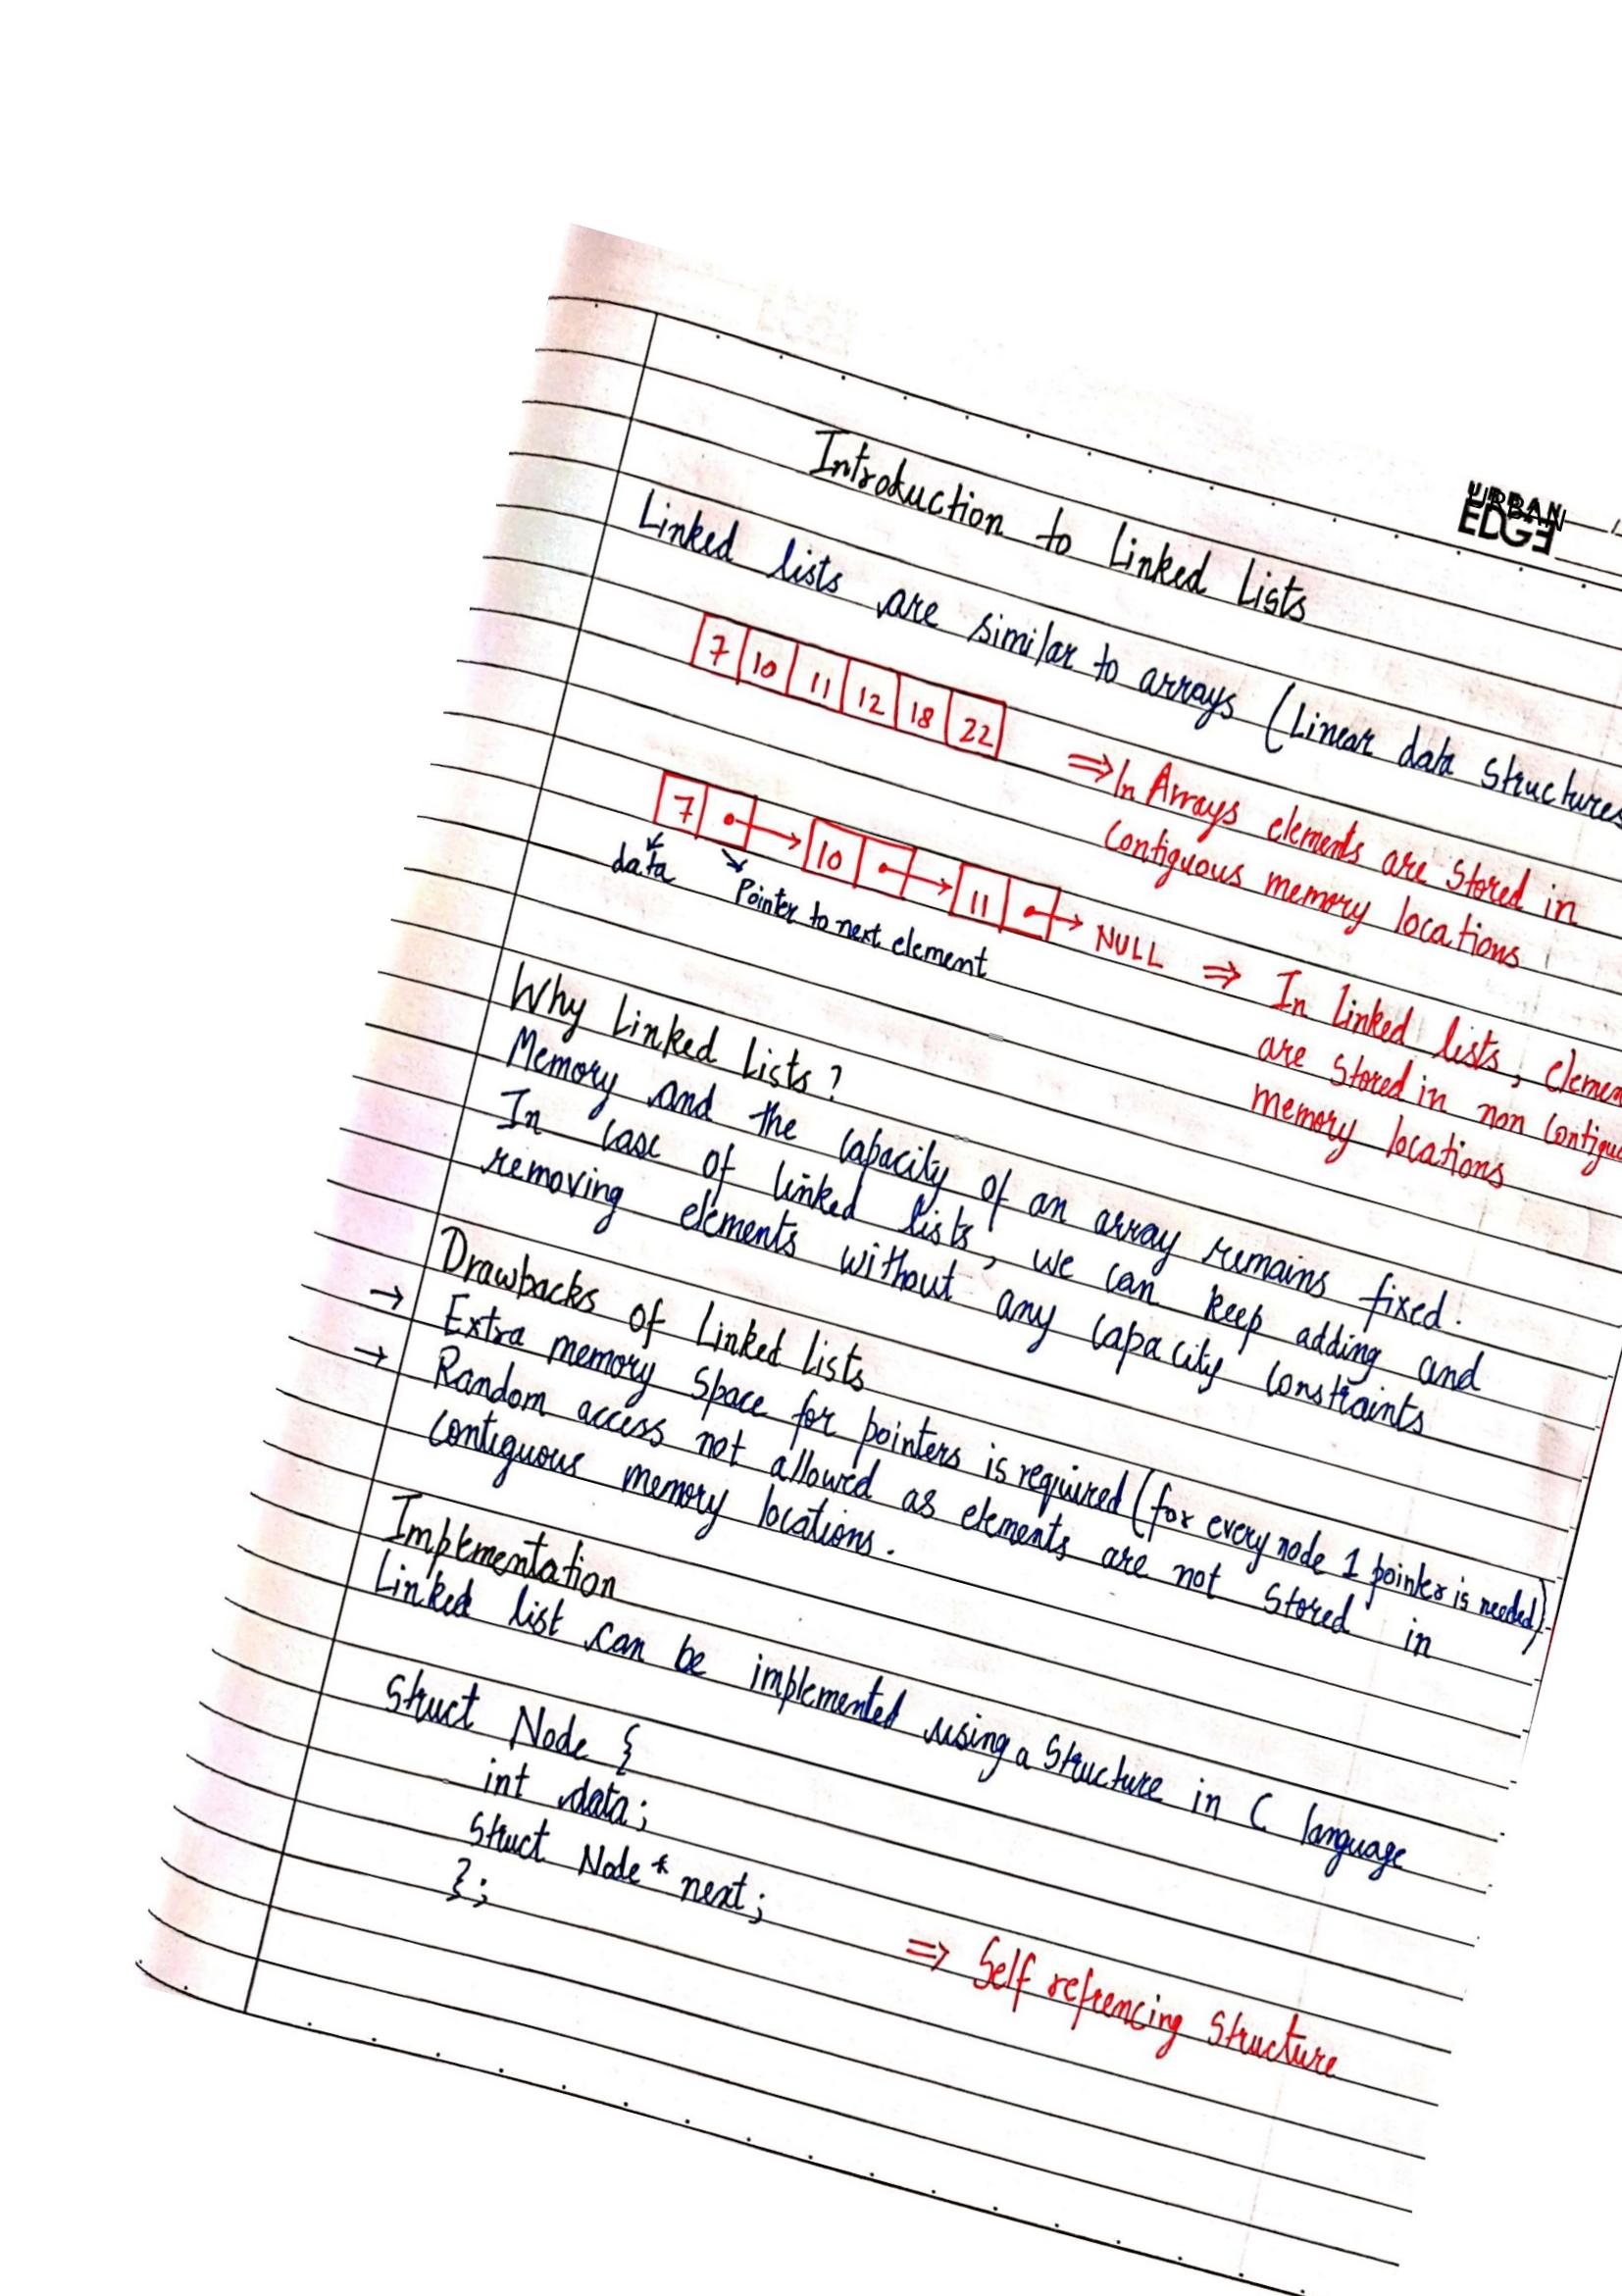 URBAN
EDGE
Introduction to Linked Lists
Linked lists are similar to arrays (Linear data structures
7 10 11 12 18 22
⇒ In Arrays elements are stored in
contiguous memory locations
7 → 10 → 11 → NULL
data
Pointer to next element
⇒ In linked lists,
are stored in non
memory locations
Why Linked Lists?
Memory and the capacity of an array remains fixed.
In case of linked lists, we can keep adding and
removing elements without any capacity constraints
Drawbacks of Linked Lists
→ Extra memory space for pointers is required (for every node 1 pointer is needed)
→ Random access not allowed as elements are not stored in
contiguous memory locations.
Implementation
Linked list can be implemented using a structure in C language
Struct Node {
int data;
Struct Node * next;
};
⇒ Self refrencing structure